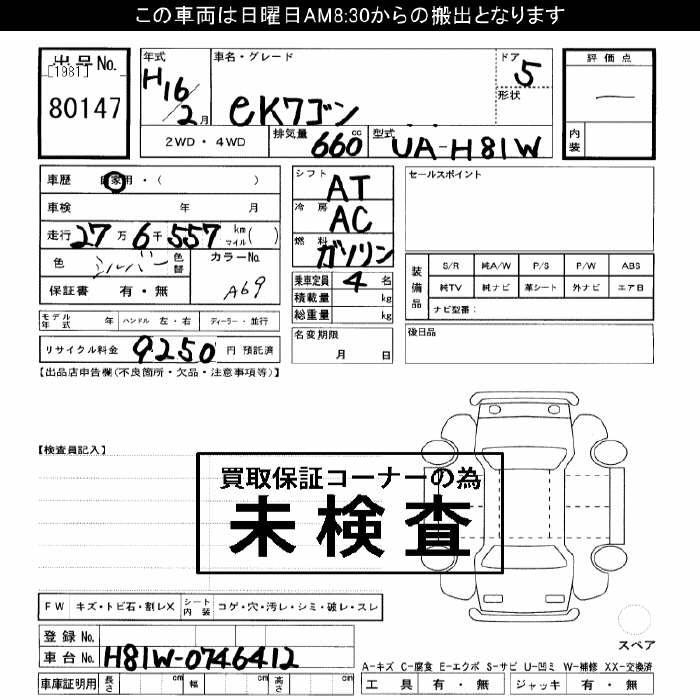 この車両は日曜日AM8:30からの搬出となります
出品No.
[1981]
80147
年式
H16/2月
車名・グレード
eKワゴン
ドア
5
形状
評価点
—
内装
2WD・4WD
排気量
660cc
型式
UA-H81W
車歴 自家用・( )
車検 年 月
走行 27万6千557 km マイル( )
色 シルバー 色替
カラーNo.
A69
保証書 有・無
モデル年式 年 ハンドル 左・右 ディーラー・並行
リサイクル料金 9250 円 預託済
シフト AT
冷房 AC
燃料 ガソリン
乗車定員 4 名
積載量 kg
総重量 kg
名変期限
月 日
セールスポイント
装備品
S/R 純A/W P/S P/W ABS
純TV 純ナビ 革シート 外ナビ エアB
ナビ型番:
後日品
【出品店申告欄(不良箇所・欠品・注意事項等)】
【検査員記入】
買取保証コーナーの為
未検査
FW キズ・トビ石・割レX シート内装 コゲ・穴・汚レ・シミ・破レ・スレ
登録No.
車台No. H81W-0746412
車庫証明用 長さ cm 幅 cm 高さ cm
スペア
A-キズ C-腐食 E-エクボ S-サビ U-凹ミ W-補修 XX-交換済
工具 有・無 ジャッキ 有・無